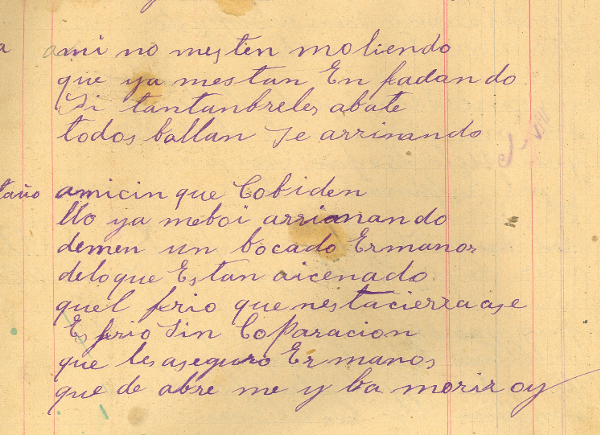 a ami no mesten moliendo
que ya mestan Enfadando
Si tantanbreles abate
todos ballan Se arrinando
taño amicin que Cobiden
llo ya meboi arrianando
demen un bocado Ermanos
deloque Estan aicenado
quel frio que nestacierraase
Es frio Sin Coparacion
que les aseguro Ermanos
que de abre me y ba moriroy